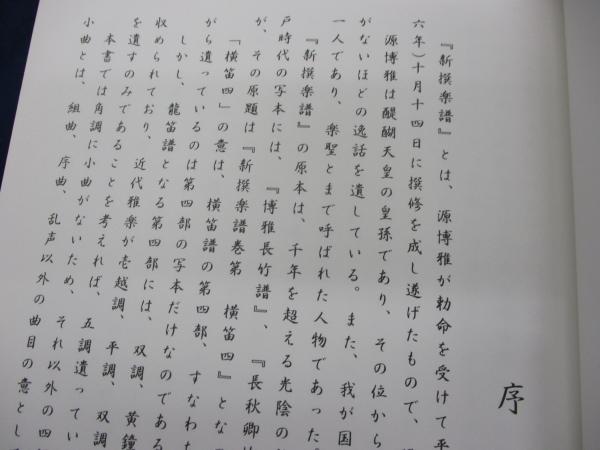 序
『新撰楽譜』とは、源博雅が勅命を受けて平
六年）十月十四日に撰修を成し遂げたもので、
源博雅は醍醐天皇の皇孫であり、その位から
がないほどの逸話を遺している。また、我が国
一人であり、楽聖とまで呼ばれた人物であった。
『新撰楽譜』の原本は、千年を超える光陰の
戸時代の写本には、『博雅長竹譜』、『長秋卿
が、その原題は『新撰楽譜巻第 横笛四』とな
「横笛四」の意は、横笛譜の第四部、すなわ
がら遺っているのは第四部の写本だけなのである
しかし、龍笛譜となる第四部には、双調、黄鐘
収められており、近代雅楽が壱越調、平調、双調
を遺すのみであることを考えれば、五調遺ってい
本書では角調に小曲がないため、それ以外の四
小曲とは、組曲、序曲、乱声以外の曲目の意とし